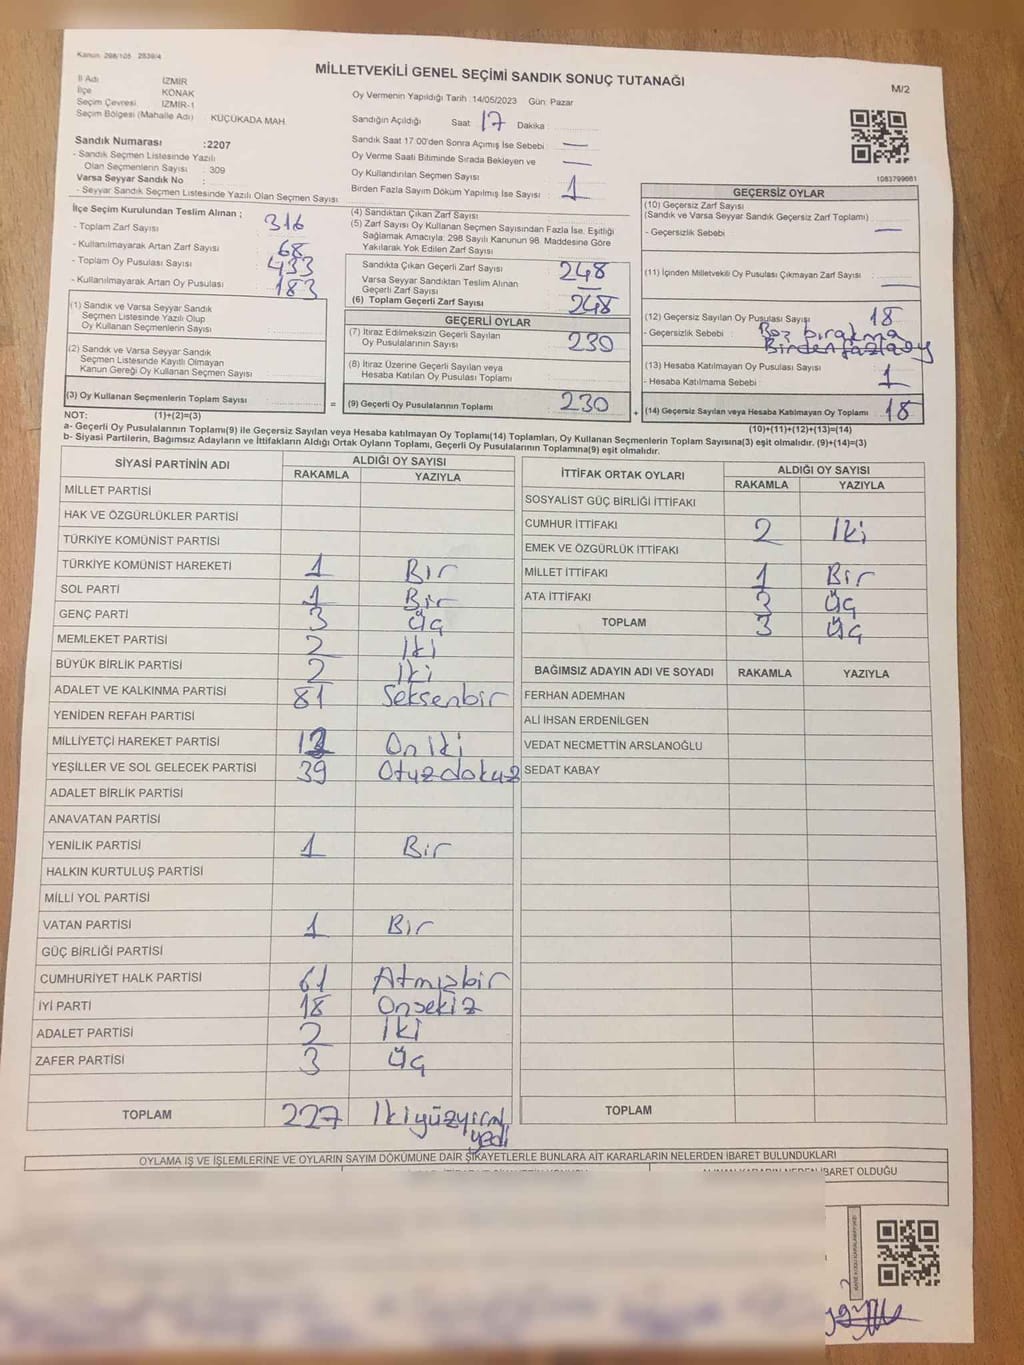 Kanun: 298/105 2839/4
MİLLETVEKİLİ GENEL SEÇİMİ SANDIK SONUÇ TUTANAĞI
M/2
İl Adı İZMİR
İlçe KONAK
Seçim Çevresi İZMİR-1
Seçim Bölgesi (Mahalle Adı) KÜÇÜKADA MAH.
Oy Vermenin Yapıldığı Tarih :14/05/2023 Gün: Pazar
Sandığın Açıldığı Saat 17 Dakika :
Sandık Numarası :2207
- Sandık Seçmen Listesinde Yazılı
Olan Seçmenlerin Sayısı : 309
Varsa Seyyar Sandık No :
- Seyyar Sandık Seçmen Listesinde Yazılı Olan Seçmen Sayısı
Sandık Saat 17:00'den Sonra Açımış İse Sebebi : —
Oy Verme Saati Bitiminde Sırada Bekleyen ve
Oy Kullandırılan Seçmen Sayısı —
Birden Fazla Sayım Döküm Yapılmış İse Sayısı : 1
1083799661
İlçe Seçim Kurulundan Teslim Alınan ;
- Toplam Zarf Sayısı 316
- Kullanılmayarak Artan Zarf Sayısı 68
- Toplam Oy Pusulası Sayısı 433
- Kullanılmayarak Artan Oy Pusulası 183
(1) Sandık ve Varsa Seyyar Sandık
Seçmen Listesinde Yazılı Olup
Oy Kullanan Seçmenlerin Sayısı
(2) Sandık ve Varsa Seyyar Sandık
Seçmen Listesinde Kayıtlı Olmayan
Kanun Gereği Oy Kullanan Seçmen Sayısı
(3) Oy Kullanan Seçmenlerin Toplam Sayısı
=
(4) Sandıktan Çıkan Zarf Sayısı
(5) Zarf Sayısı Oy Kullanan Seçmen Sayısından Fazla İse, Eşitliği
Sağlamak Amacıyla; 298 Sayılı Kanunun 98. Maddesine Göre
Yakılarak Yok Edilen Zarf Sayısı
Sandıkta Çıkan Geçerli Zarf Sayısı 248
Varsa Seyyar Sandıktan Teslim Alınan
Geçerli Zarf Sayısı —
(6) Toplam Geçerli Zarf Sayısı 248
GEÇERLİ OYLAR
(7) İtiraz Edilmeksizin Geçerli Sayılan
Oy Pusulalarının Sayısı 230
(8) İtiraz Üzerine Geçerli Sayılan veya
Hesaba Katılan Oy Pusulası Toplamı
(9) Geçerli Oy Pusulalarının Toplamı 230
+
GEÇERSİZ OYLAR
(10) Geçersiz Zarf Sayısı
(Sandık ve Varsa Seyyar Sandık Geçersiz Zarf Toplamı)
- Geçersizlik Sebebi —
(11) İçinden Milletvekili Oy Pusulası Çıkmayan Zarf Sayısı —
(12) Geçersiz Sayılan Oy Pusulası Sayısı 18
- Geçersizlik Sebebi : Boş bırakma
Birden fazla oy
(13) Hesaba Katılmayan Oy Pusulası Sayısı
- Hesaba Katılmama Sebebi 1
(14) Geçersiz Sayılan veya Hesaba Katılmayan Oy Toplamı 18
NOT: (1)+(2)=(3)
(10)+(11)+(12)+(13)=(14)
a- Geçerli Oy Pusulalarının Toplamı(9) ile Geçersiz Sayılan veya Hesaba Katılmayan Oy Toplamı(14) Toplamları, Oy Kullanan Seçmenlerin Toplam Sayısına(3) eşit olmalıdır. (9)+(14)=(3)
b- Siyasi Partilerin, Bağımsız Adayların ve İttifakların Aldığı Ortak Oyların Toplamı, Geçerli Oy Pusulalarının Toplamına(9) eşit olmalıdır.
SİYASİ PARTİNİN ADI
ALDIĞI OY SAYISI
RAKAMLA YAZIYLA
MİLLET PARTİSİ
HAK VE ÖZGÜRLÜKLER PARTİSİ
TÜRKİYE KOMÜNİST PARTİSİ
TÜRKİYE KOMÜNİST HAREKETİ 1 Bir
SOL PARTİ 1 Bir
GENÇ PARTİ 3 Üç
MEMLEKET PARTİSİ 2 İki
BÜYÜK BİRLİK PARTİSİ 2 İki
ADALET VE KALKINMA PARTİSİ 81 Seksenbir
YENİDEN REFAH PARTİSİ
MİLLİYETÇİ HAREKET PARTİSİ 12 On iki
YEŞİLLER VE SOL GELECEK PARTİSİ 39 Otuzdokuz
ADALET BİRLİK PARTİSİ
ANAVATAN PARTİSİ
YENİLİK PARTİSİ 1 Bir
HALKIN KURTULUŞ PARTİSİ
MİLLİ YOL PARTİSİ
VATAN PARTİSİ 1 Bir
GÜÇ BİRLİĞİ PARTİSİ
CUMHURİYET HALK PARTİSİ 61 Atmışbir
İYİ PARTİ 18 Onsekiz
ADALET PARTİSİ 2 İki
ZAFER PARTİSİ 3 Üç
TOPLAM 227 İkiyüzyirmi
yedi
İTTİFAK ORTAK OYLARI
ALDIĞI OY SAYISI
RAKAMLA YAZIYLA
SOSYALİST GÜÇ BİRLİĞİ İTTİFAKI
CUMHUR İTTİFAKI 2 İki
EMEK VE ÖZGÜRLÜK İTTİFAKI
MİLLET İTTİFAKI 1 Bir
ATA İTTİFAKI 3 Üç
TOPLAM 3 Üç
BAĞIMSIZ ADAYIN ADI VE SOYADI RAKAMLA YAZIYLA
FERHAN ADEMHAN
ALİ İHSAN ERDENİLGEN
VEDAT NECMETTİN ARSLANOĞLU
SEDAT KABAY
TOPLAM
OYLAMA İŞ VE İŞLEMLERİNE VE OYLARIN SAYIM DÖKÜMÜNE DAİR ŞİKAYETLERLE BUNLARA AİT KARARLARIN NELERDEN İBARET BULUNDUKLARI
ALINAN KARARIN NEDEN İBARET OLDUĞU